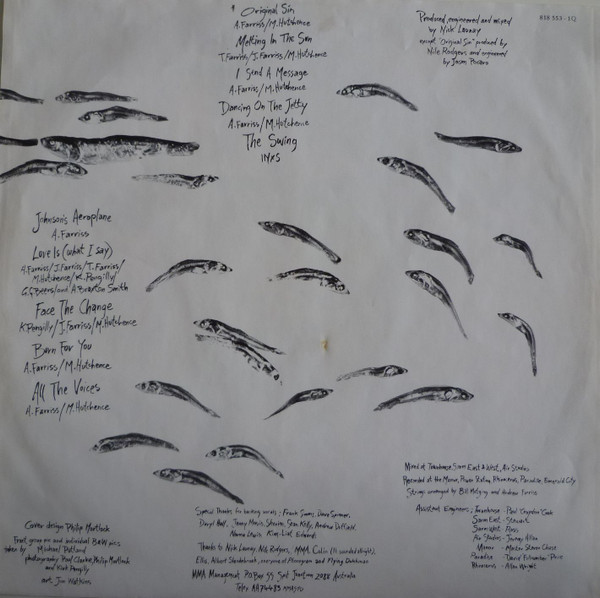 Original Sin
A. Farriss/M. Hutchence
Melting In The Sun
T. Farriss/J. Farriss/M. Hutchence
I Send A Message
A. Farriss/M. Hutchence
Dancing On The Jetty
A. Farriss/M. Hutchence
The Swing
INXS
Produced, engineered and mixed
by Nick Launay
except "Original Sin" produced by
Nile Rodgers and engineered
by Jason
818 553-1Q
Johnson's Aeroplane
A. Farriss
Love Is (what I say)
A. Farriss/J. Farriss/T. Farriss/
M. Hutchence/K. Pengilly/
G.G. Beers/and A. Braxton Smith
Face The Change
K. Pengilly/J. Farriss/M. Hutchence
Burn For You
A. Farriss/M. Hutchence
All The Voices
A. Farriss/M. Hutchence
Mixed at Townhouse, Sarm East & West, Air Studios
Recorded at the Manor, Power Station, Rhinoceros, Paradise, Emerald City
Strings arranged by Bill and Andrew Farriss
Assistant Engineers; Townhouse - Paul
Sarm East - Stewart
Sarm West -
Air Studios - Jeremy Allen
Manor - Steven Chase
Paradise - David Price
Rhinoceros - Allan Wright
Cover design Philip Mortlock
Front group and individual B&W pics
taken by Michael Putland
photography Paul Clarke, Philip Mortlock
and Kirk Pengilly
art. Jim
Special thanks for backing vocals;
Daryl Hall, Jenny Morris,
Thanks to Nick Launay, Nile Rodgers, MMA
Ellis, Albert everyone at Polygram and Flying Dutchman
MMA Management P.O Box Australia
Telex